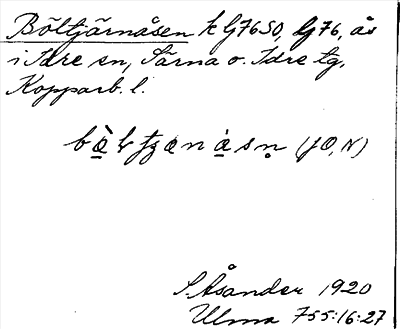 Böltjärnåsen k G7650, Gg76, ås
i Idre sn, Särna o. Idre tg,
Kopparb. l.
(JO, N)
S. Åsander 1920
Ulma 755:16:27